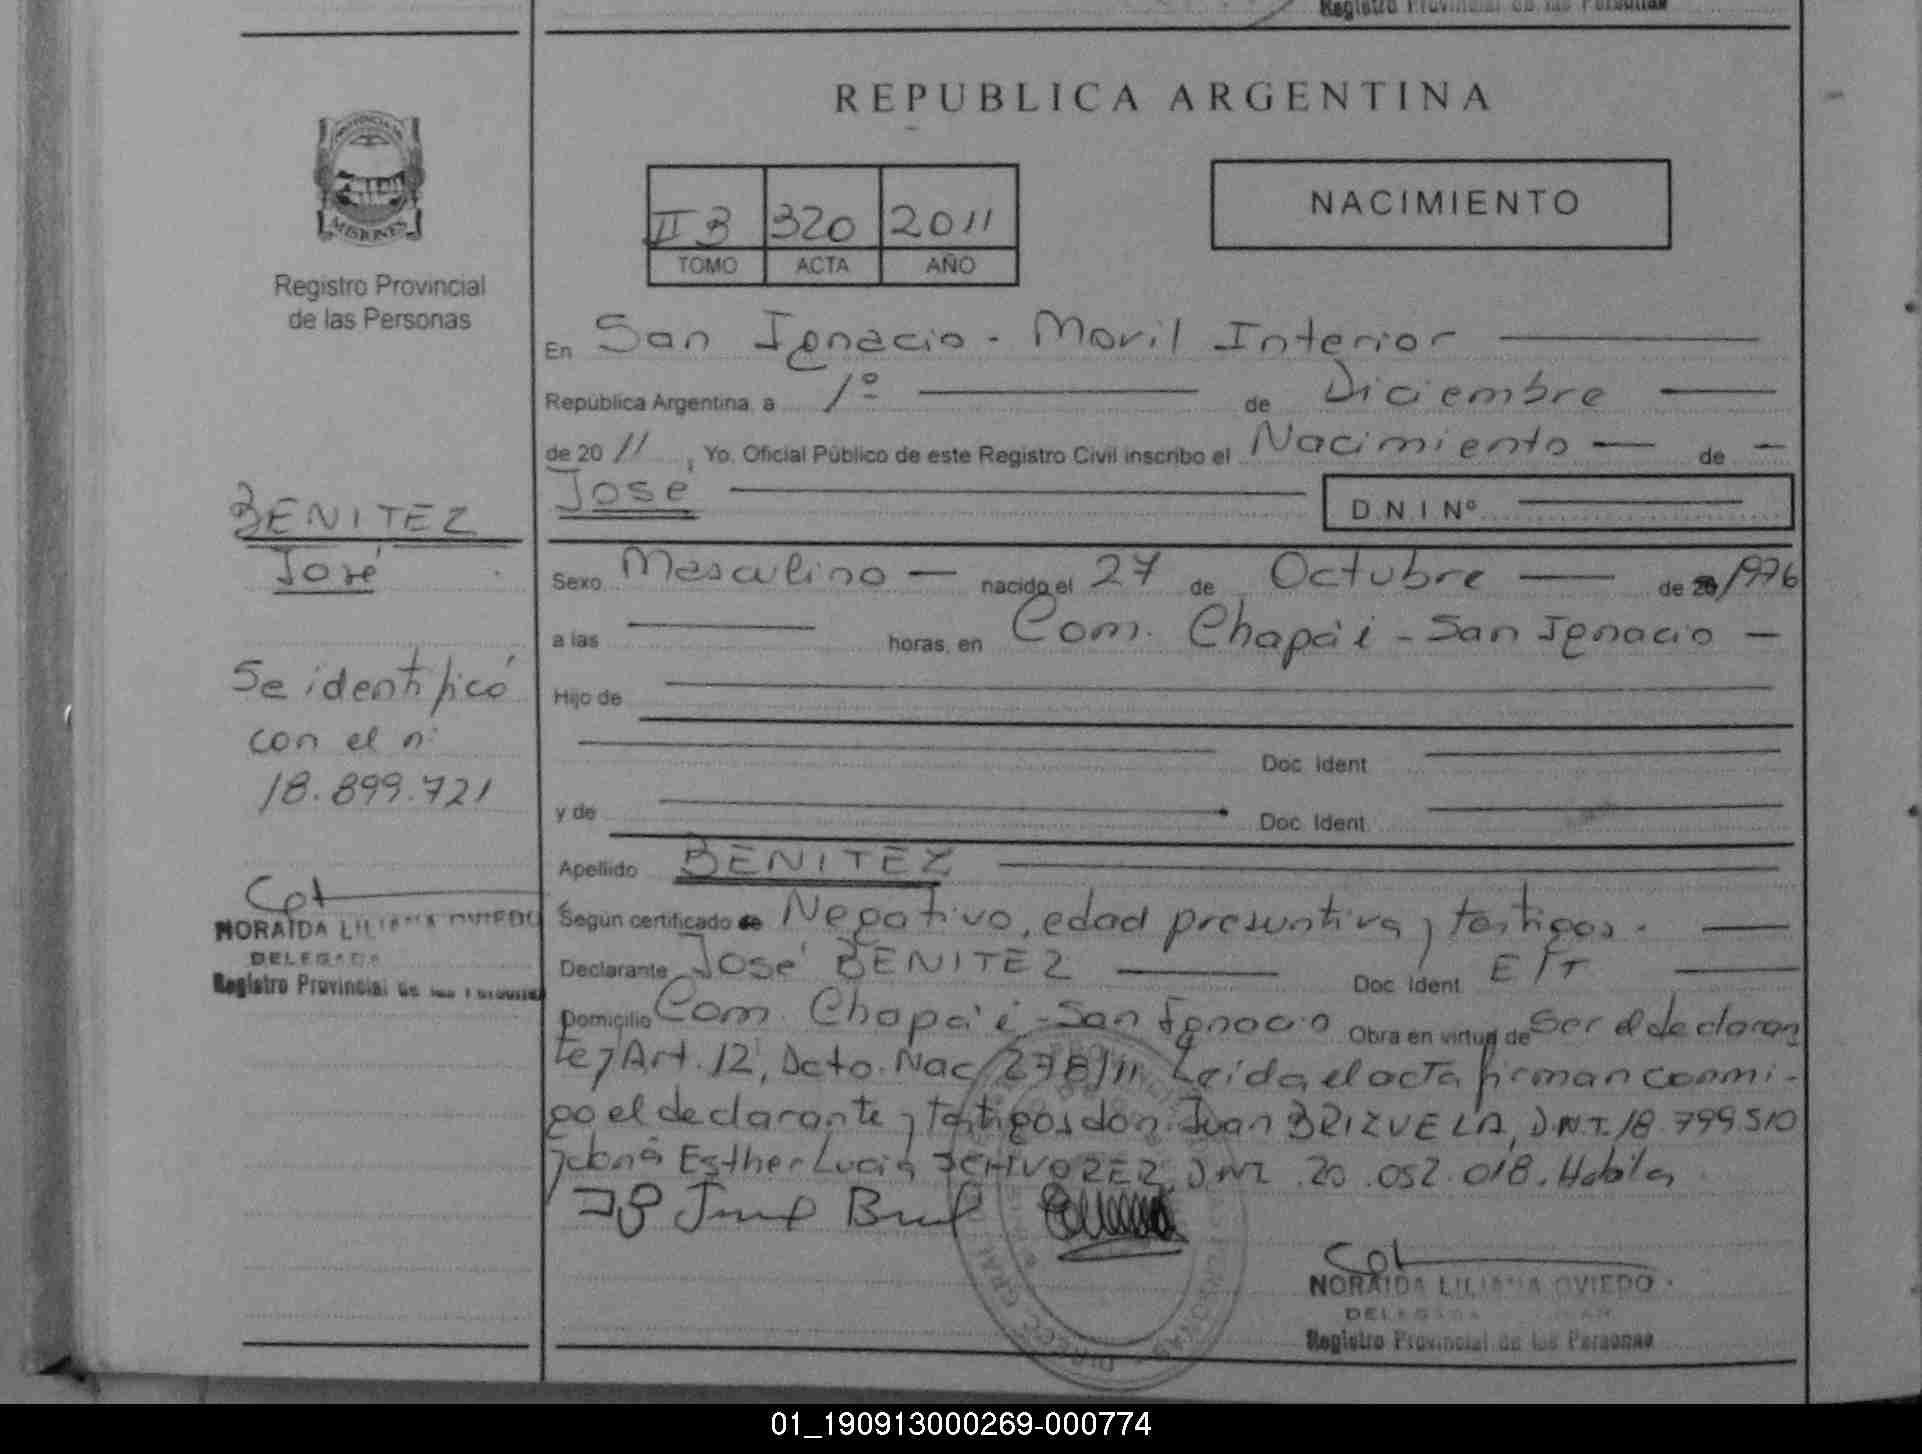 Registro Provincial de las Personas
REPUBLICA ARGENTINA
PROVINCIA DE
MISIONES
Registro Provincial
de las Personas
II B 320 2011
TOMO ACTA AÑO
NACIMIENTO
En San Ignacio - Movil Interior
República Argentina, a 1º de Diciembre
de 2011, Yo, Oficial Público de este Registro Civil inscribo el Nacimiento de
José
D.N.I Nº
BENITEZ
José
Se identificó
con el nº
18.899.721
NORAIDA LILIANA OVIEDO
DELEGADA
Registro Provincial de las Personas
Sexo Masculino nacido el 27 de Octubre de 20/1976
a las horas, en Com. Chapa'i - San Ignacio
Hijo de
Doc. Ident.
y de Doc. Ident.
Apellido BENITEZ
Según certificado de Negativo, edad presuntiva y testigos.
Declarante José BENITEZ Doc. Ident. E/T
Domicilio Com. Chapa'i - San Ignacio Obra en virtud de Ser el declaran
te y Art. 12, Dcto. Nac. 278/11. Leída el acta firman conmi-
go el declarante y testigos don Juan BRIZUELA, D.N.I. 18.799.510
y doña Esther Lucia DNI. 20.052.018. Habiles
NORAIDA LILIANA OVIEDO
DELEGADA
Registro Provincial de las Personas
01_190913000269-000774